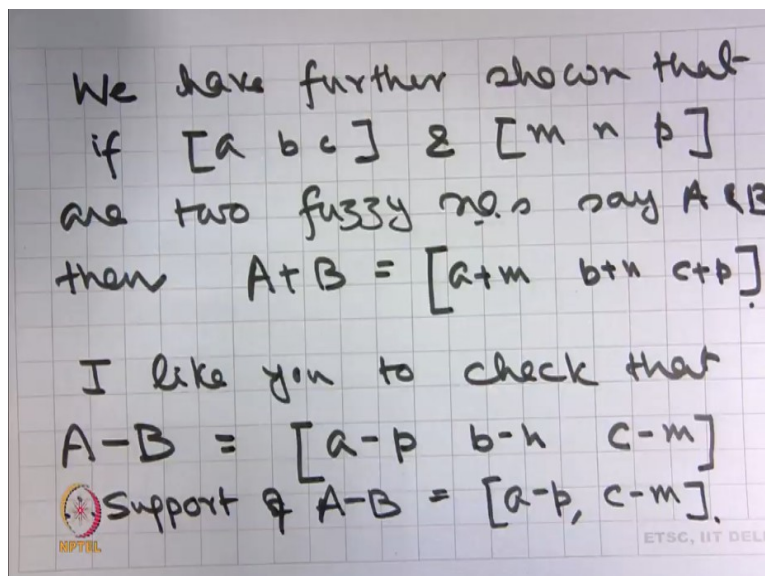 We have further shown that
if [a b c] & [m n p]
are two fuzzy no.s say A & B
then A+B = [a+m b+n c+p].
I like you to check that
A-B = [a-p b-n c-m]
Support of A-B = [a-p, c-m].
NPTEL
ETSC, IIT DEL